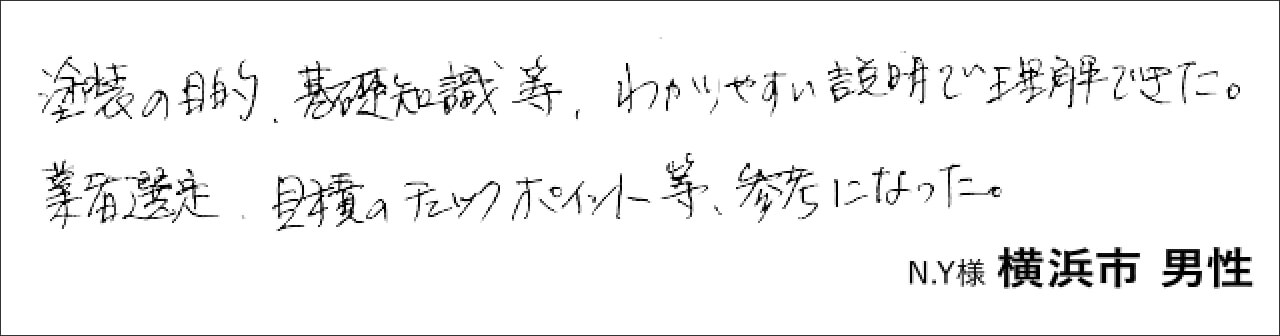 塗装の目的、基礎知識等、わかりやすい説明で理解できた。
業者選定、見積のチェックポイント等、参考になった。
N.Y様 横浜市 男性